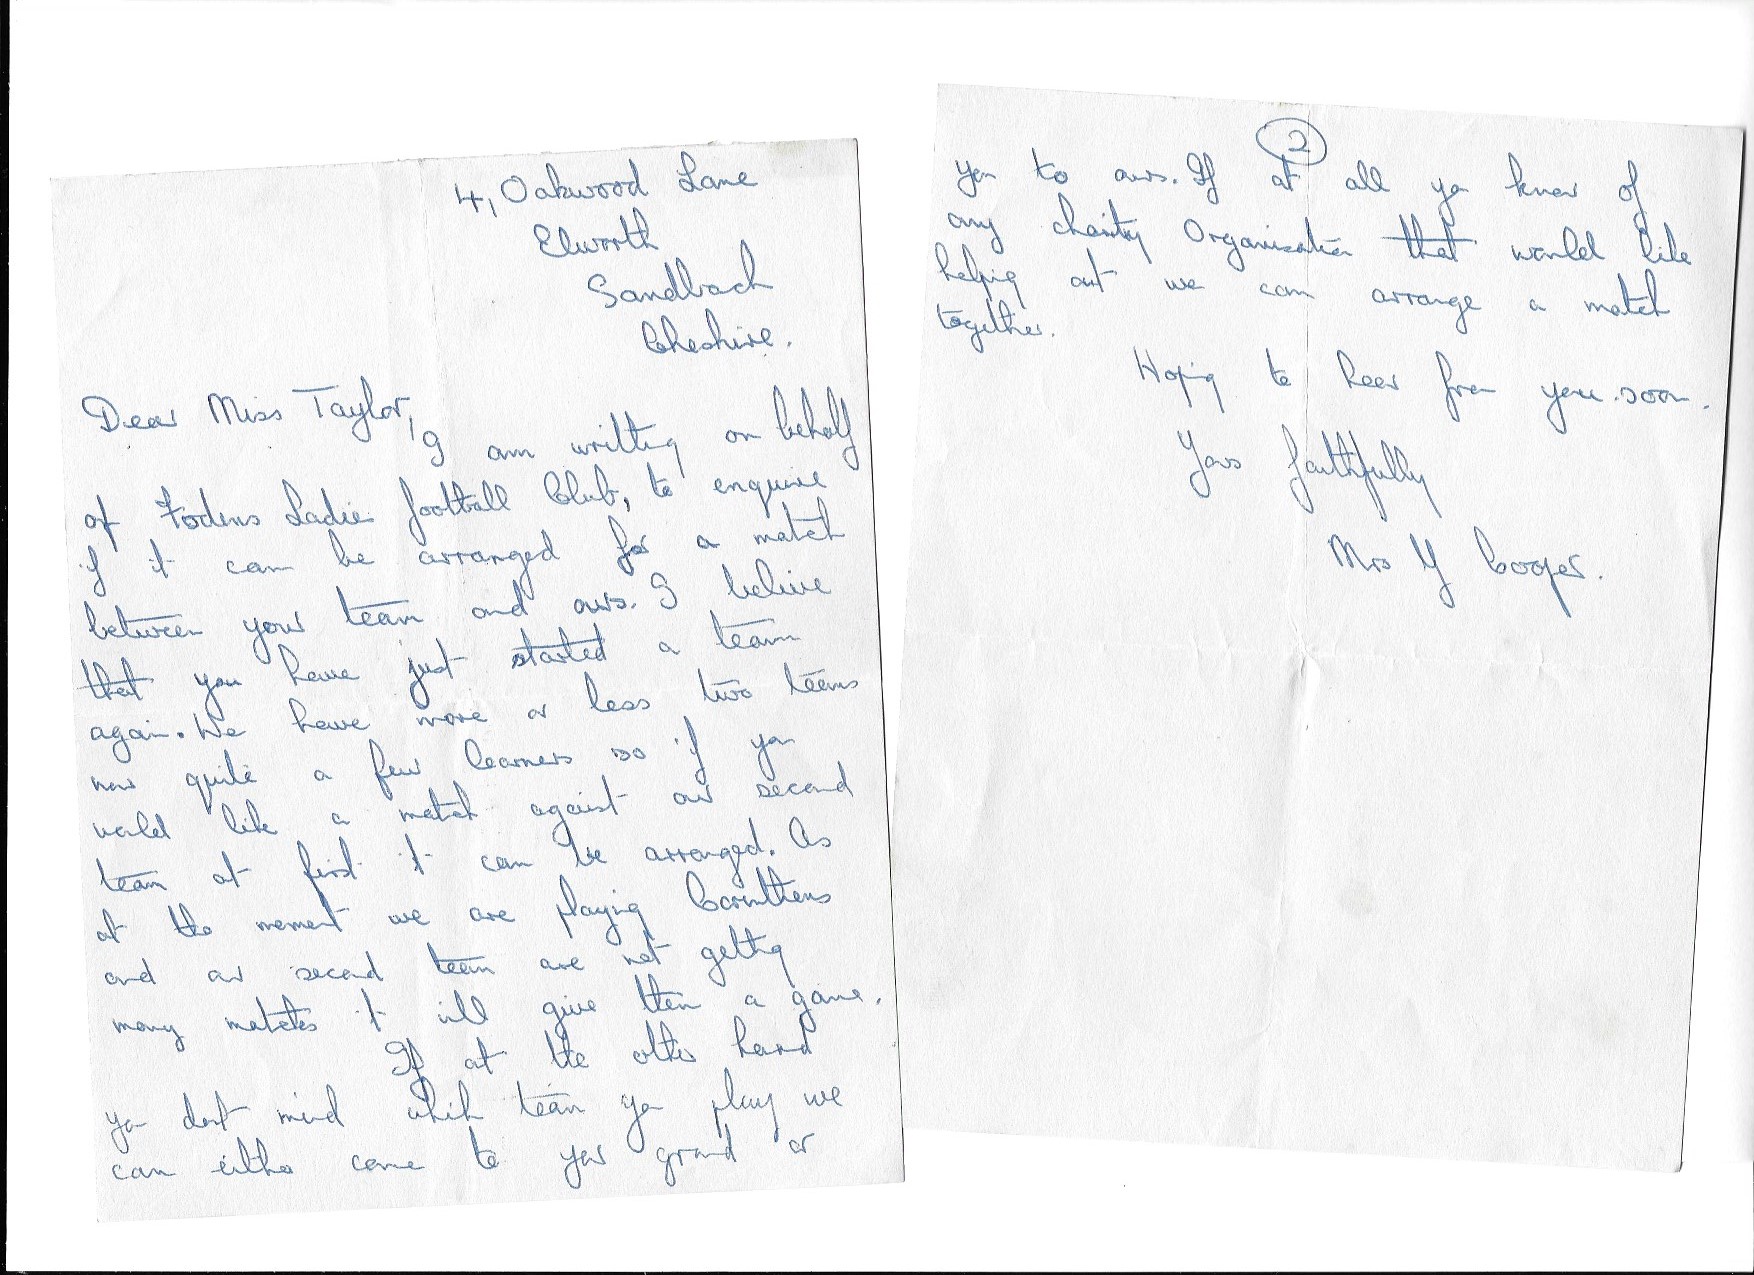 4, Oakwood Lane
Elworth
Sandbach
Cheshire.
Dear Miss Taylor,
I am writting on behalf
of Fodens Ladies football Club, to enquire
if it can be arranged for a match
between your team and ours. I belive
that you have just started a team
again. We have more or less two teams
now quite a few learners so if you
would like a match against our second
team at first it can be arranged. As
at the moment we are playing Corinthens
and our second team are not getting
many matches it will give them a game.
If at the other hand
you dont mind which team you play we
can either come to your ground or
2
you to ours. If at all you know of
any charity Organisation that would like
helping out we can arrange a match
together.
Hoping to hear from you soon.
Yours faithfully
Mrs Y Cooper.